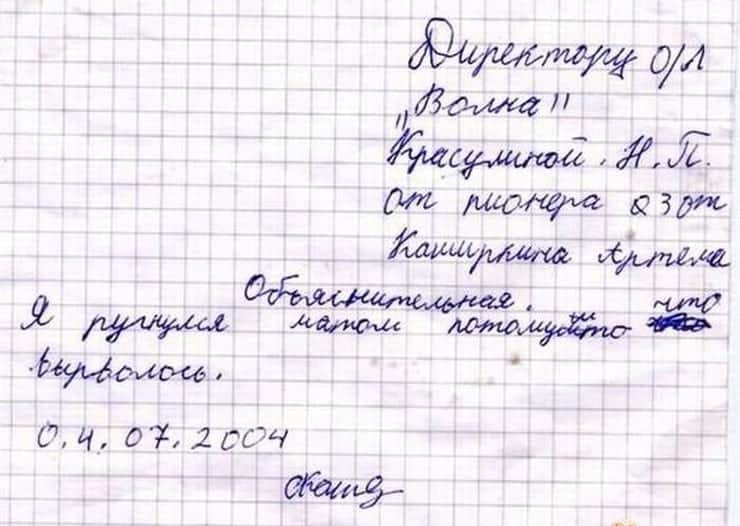 Директору о/л
„Волна"
Красулиной. Н. П.
от пионера 23 от
Каширкина Артема
Объяснительная.
Я ругнулся матом потомуйто что
вырволось.
0.4.07.2004